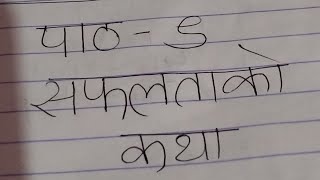 पाठ - 5
सफलताको
कथा